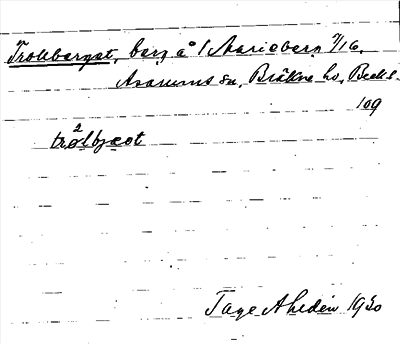 Trollberget, berg å 1 Marieberg 7/16,
Asarums sn, Bräkne hd, Blek l.
109
2
trolbjæst
Tage Ahldén 1930